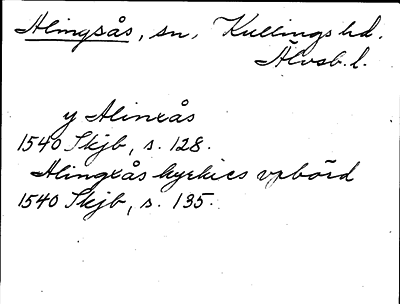 Alingsås, sn, Kullings hd.
Älvsb. l.
y Alinxås
1540 Skjb, s. 128.
Alingxås kyrkies vpbörd
1540 Skjb, s. 135.